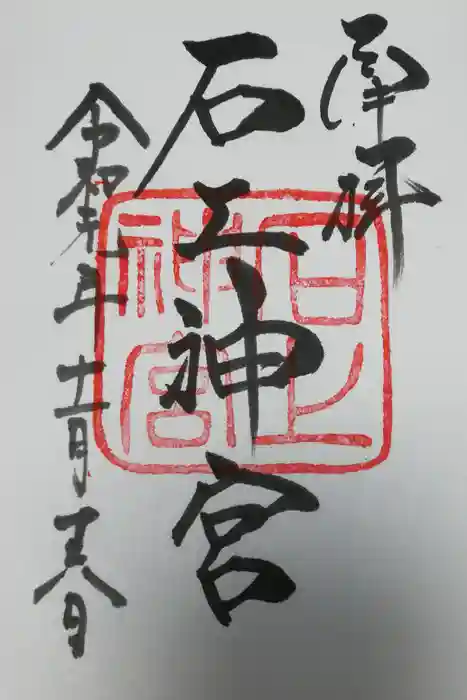 奉拝
石上神宮
令和五年十一月十六日
石上
神宮